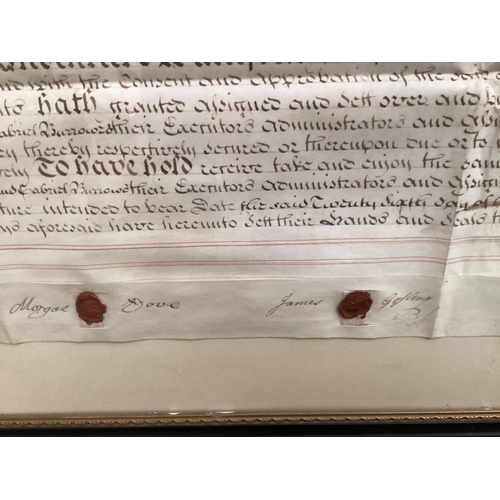 and with the Consent and Approbation of the said
hath granted assigned and Sett over and
Gabriel Burrows their Executors Administrators and
thereby respectively secured or thereupon due or to
To have hold receive take and enjoy the same
Gabriel Burrows their Executors Administrators and
intended to bear Date the said Twenty sixth day of
aforesaid have hereunto Sett their Hands and Seals
Dove James